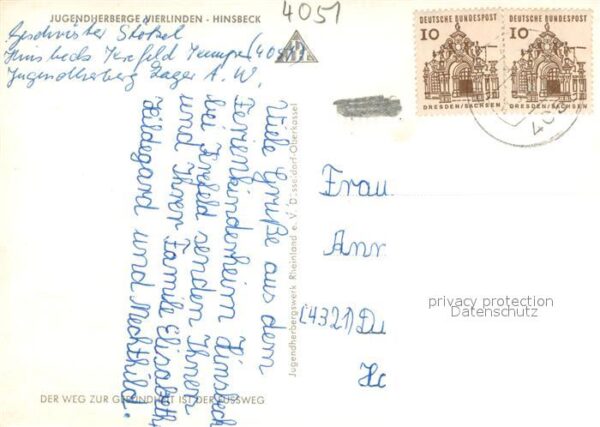 JUGENDHERBERGE VIERLINDEN - HINSBECK
4051
Geschwister
Hinsbeck Krefeld (4051)
Jugendherberg Lager A. W.
DEUTSCHE BUNDESPOST
10
DRESDEN/SACHSEN
DEUTSCHE BUNDESPOST
10
DRESDEN/SACHSEN
Viele Grüße aus dem
Ferienkinderheim Hinsbeck
bei Krefeld senden Ihnen
und Ihrer Familie Elisabeth,
Hildegard und Mechthild.
Jugendherbergswerk Rheinland e. V. Düsseldorf-Oberkassel
Frau
Ann
(4321) Du
privacy protection
Datenschutz
DER WEG ZUR GESUNDHEIT IST DER FUSSWEG